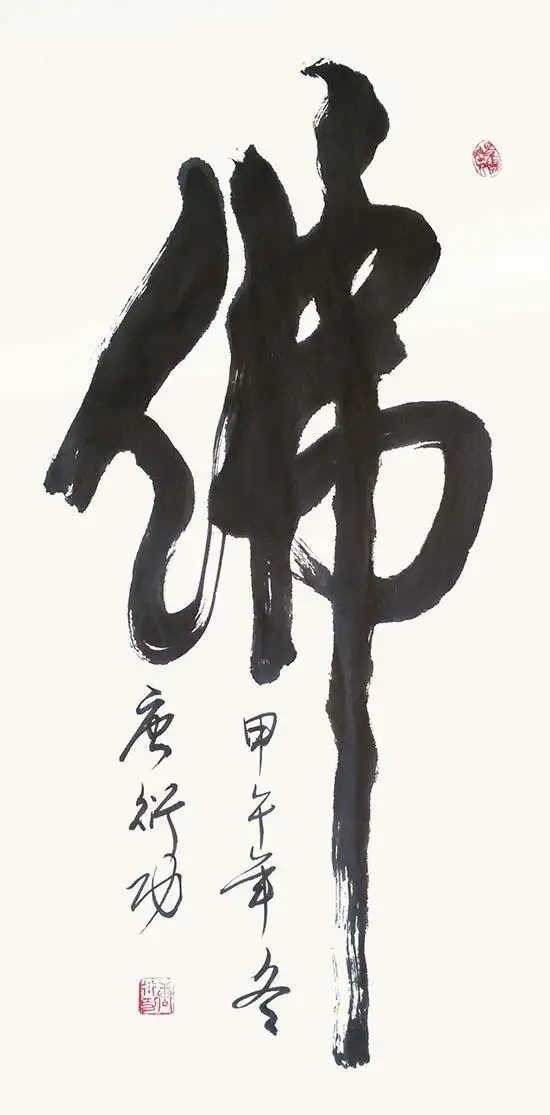 佛
甲午年冬
唐衍功